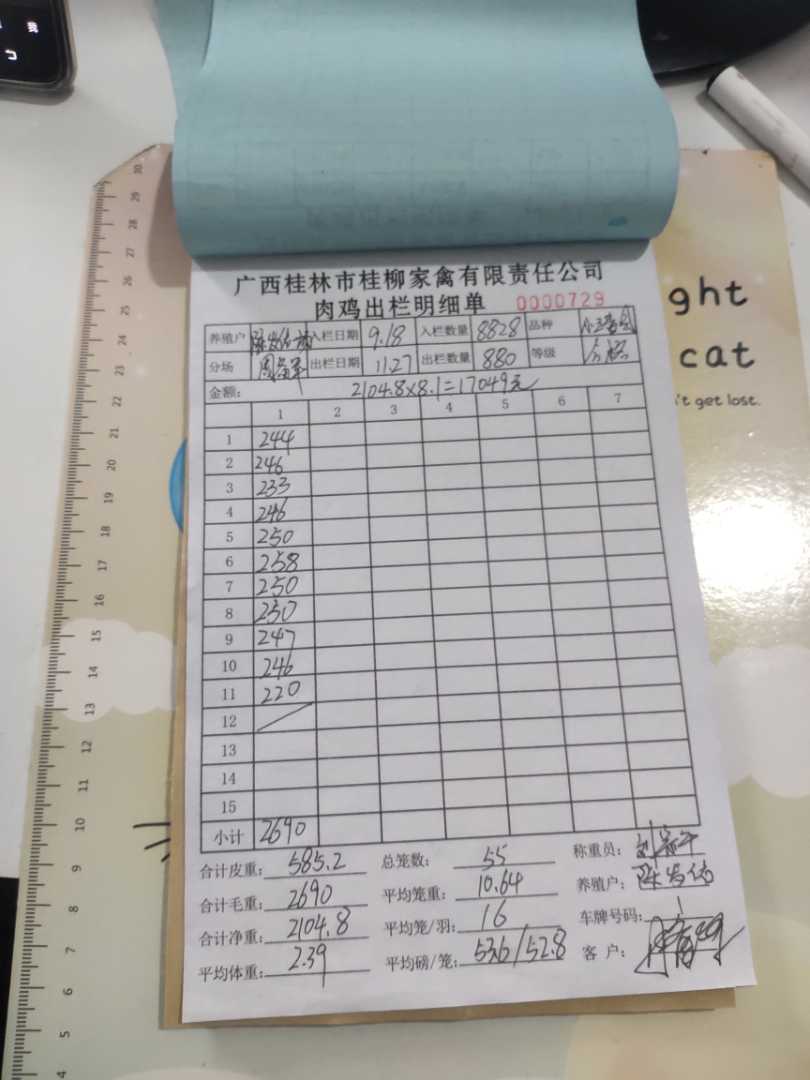 广西桂林市桂柳家禽有限责任公司
肉鸡出栏明细单 0000729
养殖户 入栏日期 9.18 入栏数量 8828 品种
分场 出栏日期 11.27 出栏数量 880 等级
金额: 2104.8×8.1=17049元
1 2 3 4 5 6 7
1 244
2 246
3 233
4 246
5 250
6 258
7 250
8 250
9 247
10 246
11 220
12
13
14
15
小计 2690
合计皮重: 585.2 总笼数: 55 称重员:
合计毛重: 2690 平均笼重: 10.64 养殖户:
合计净重: 2104.8 平均笼/羽: 16 车牌号码:
平均体重: 2.39 平均磅/笼: 53.6/52.8 客户:
ght
cat
't get lost.
30
29
28
27
26
25
24
23
22
21
20
19
18
17
16
15
14
13
12
11
10
9
8
7
6
5
4